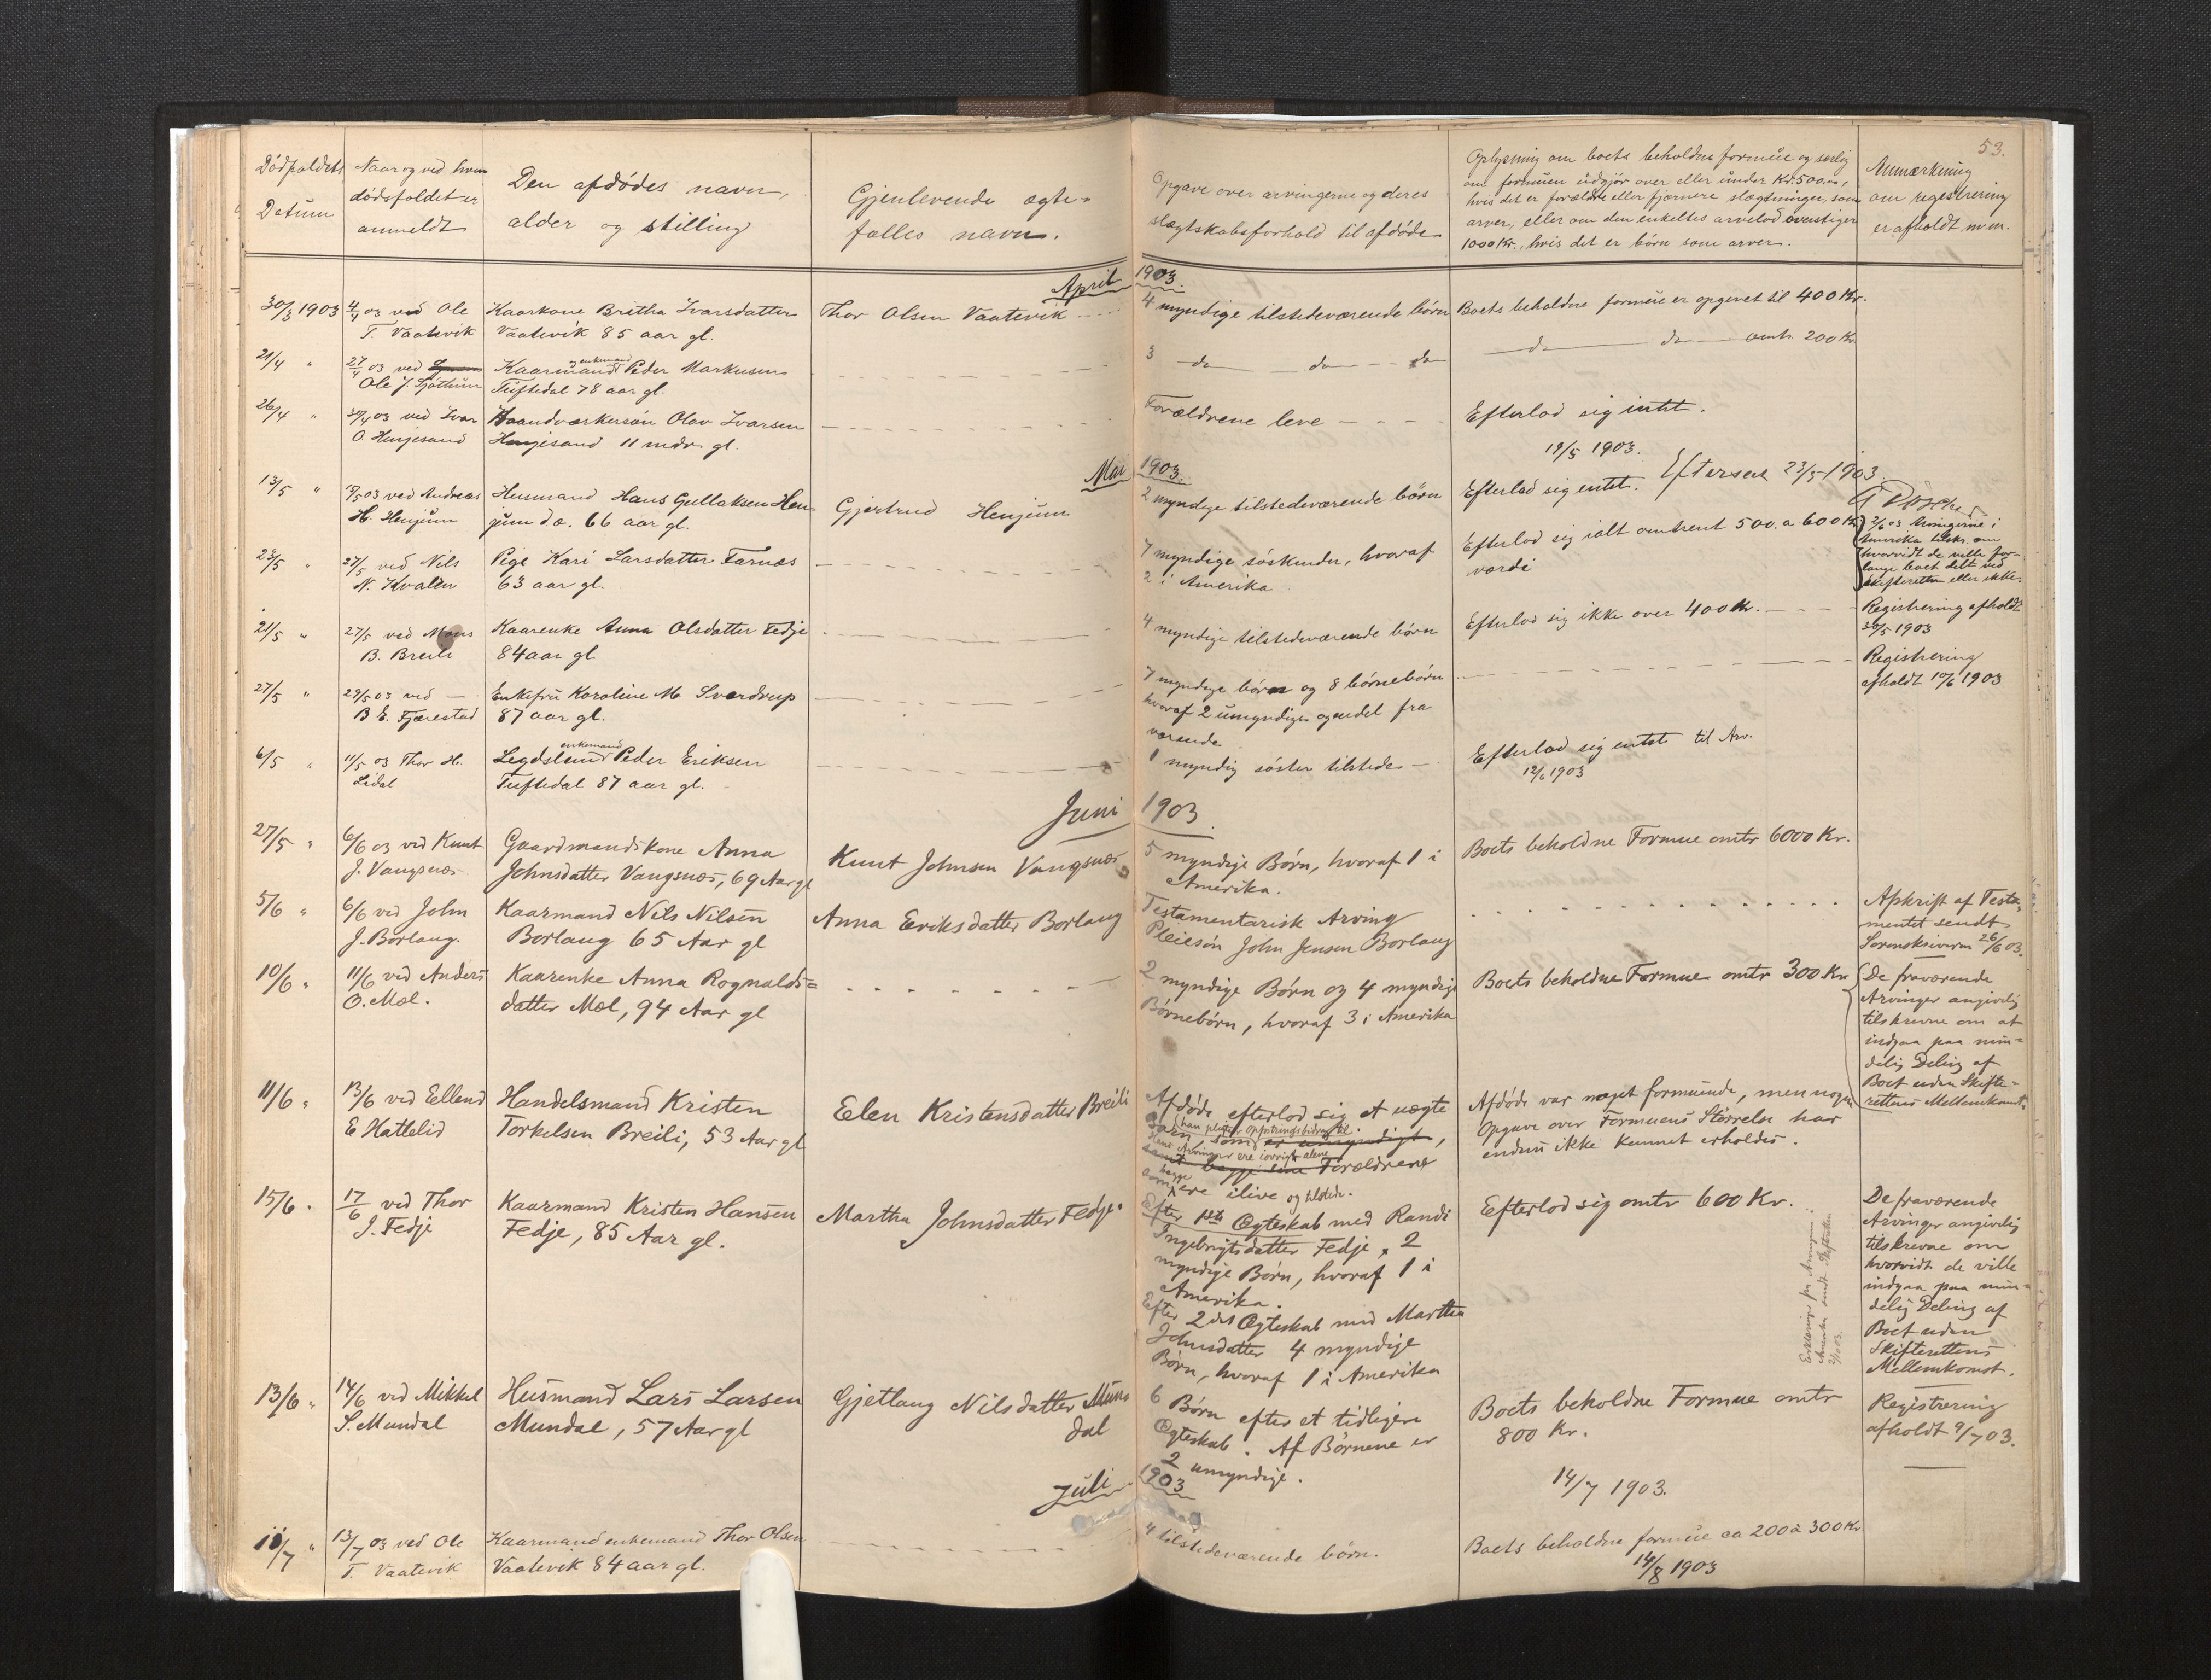 53.
Dødsfaldets
Datum
Naar og ved hvem
dødsfaldet er
anmeldt
Den afdødes navn,
alder og stilling
Gjenlevende ægte-
fælles navn.
Opgave over arvingerne og deres
slægtskabsforhold til afdøde
Oplysning om boets beholdne formue og særlig
om formuen udgjør over eller under Kr. 500.00,
hvis det er forældre eller fjernere slægtninger, som
arver, eller om den enkeltes arvelod overstiger
1000 Kr., hvis det er børn som arver.
Anmærkning
om registrering
er afholdt m.m.
April 1903.
30/3 1903
4/4 03 ved Ole
T. Vaatevik
Kaarkone Britha Ivarsdatter
Vaatevik 85 aar gl.
Thor Olsen Vaatevik
4 myndige tilstedeværende børn
Boets beholdne formue er opgivet til 400 Kr.
21/4 "
27/4 03 ved
Ole J. Sjøthun
og enkemand
Kaarmand Peder Markusen
Tuftedal 78 aar gl.
3 do do do
do do omtr. 200 Kr.
26/4 "
30/4 03 ved Ivar
O. Henjesand
Haandværkersøn Olav Ivarsen
Henjesand 11 mdr gl.
Forældrene leve
Efterlod sig intet.
19/5 1903.
Mai 1903.
Efterseet 23/5 1903
13/5 "
15/5 03 ved Andreas
H. Henjum
Husmand Hans Gullaksen Hen-
jum d.æ. 66 aar gl.
Gjertrud Henjum
2 myndige tilstedeværende børn
Efterlod sig intet.
23/5 "
27/5 ved Nils
N. Kvalen
Pige Kari Larsdatter Farnæs
63 aar gl.
7 myndige søskende, hvoraf
2 i Amerika
Efterlod sig ialt omtrent 500 a 600 Kr
værdi
2/6 03 Arvingerne i
Amerika tilskr. om
hvorvidt de ville for-
lange boet delt ved
skifteretten eller ikke.
21/5 "
27/5 ved Mons
B. Breili
Kaarenke Anna Olsdatter Fedje
84 aar gl.
4 myndige tilstedeværende børn
Efterlod sig ikke over 400 Kr.
Registrering afholdt
30/5 1903
27/5 "
29/5 03 ved
B E. Fjærestad
Enkefru Karoline M Sverdrup
87 aar gl.
7 myndige børn og 8 børnebørn
hvoraf 2 umyndige og endel fra
værende
Registrering
afholdt 10/6 1903
6/5 "
11/5 03 Thor H.
Lidal
enkemand
Legdslem Peder Eriksen
Tuftedal 87 aar gl.
1 myndig søster tilstede
Efterlod sig intet til Arv.
12/6 1903
Juni 1903.
27/5 "
6/6 03 ved Knut
J. Vangsnæs
Gaardmandskone Anna
Johnsdatter Vangsnæs, 69 Aar gl
Knut Johnsen Vangsnæs
5 myndige Børn, hvoraf 1 i
Amerika.
Boets beholdne Formue omtr 6000 Kr.
5/6 "
6/6 ved John
J. Borlaug.
Kaarmand Nils Nilsen
Borlaug 65 Aar gl
Anna Eriksdatter Borlaug
Testamentarisk Arving
Pleiesøn John Jensen Borlaug
Afskrift af Testa-
mentet sendt
Sorenskriveren 26/6 03.
10/6 "
11/6 ved Anders
O. Mæl.
Kaarenke Anna Rognalds-
datter Mæl, 94 Aar gl
2 myndige Børn og 4 myndige
Børnebørn, hvoraf 3 i Amerika
Boets beholdne Formue omtr 300 Kr
De fraværende
Arvinger angivelig
tilskrevne om at
indgaa paa min-
delig Deling af
Boet uden Skifte-
rettens Mellemkomst.
11/6 "
13/6 ved Ellend
E Hattelid
Handelsmand Kristen
Torkelsen Breili, 53 Aar gl
Elen Kristensdatter Breili
Afdøde efterlod sig et uægte
Barn, som er umyndigt,
samt begge Forældrene
som begge ere ilive og tilstede.
Afdøde var noget formuende, men nogen
Opgave over Formuens Størrelse har
endnu ikke kunnet erholdes.
15/6 "
17/6 ved Thor
J. Fedje
Kaarmand Kristen Hansen
Fedje, 85 Aar gl.
Martha Johnsdatter Fedje
Efter 1ste Ægteskab med Randi
Ingebrigtsdatter Fedje, 2
myndige Børn, hvoraf 1 i
Amerika.
Efter 2det Ægteskab med Martha
Johnsdatter 4 myndige
Børn, hvoraf 1 i Amerika
Efterlod sig omtr 600 Kr.
De fraværende
Arvinger angivelig
tilskrevne om
hvorvidt de ville
indgaa paa min-
delig Deling af
Boet uden
Skifterettens
Mellemkomst.
Erklæringer fra Arvingerne i
Amerika sendt Skifteretten
13/6 "
14/6 ved Mikkel
S. Mundal
Husmand Lars Larsen
Mundal, 57 Aar gl
Gjetlaug Nilsdatter Mun-
dal
6 Børn efter et tidligere
Ægteskab. Af Børnene er
2 umyndige.
Boets beholdne Formue omtr
800 Kr.
Registrering
afholdt 9/7 03.
14/7 1903.
Juli 1903
11/7 "
13/7 03 ved Ole
T. Vaatevik
Kaarmand enkemand Thor Olsen
Vaatevik 84 aar gl.
4 tilstedeværende børn.
Boets beholdne formue ca 200 à 300 Kr
14/8 1903